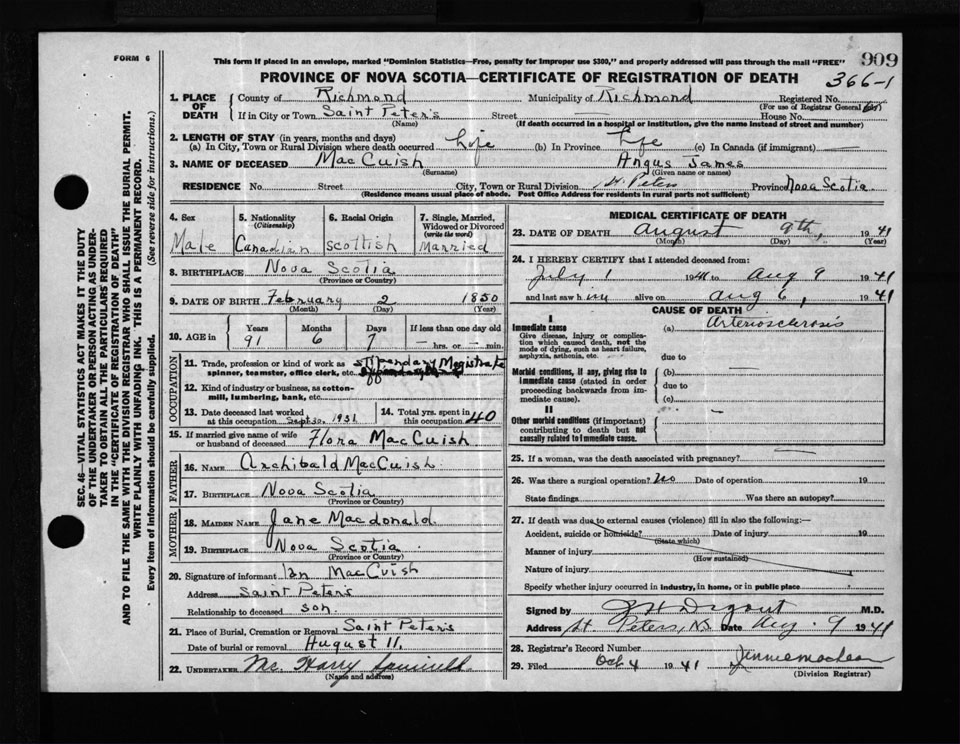 FORM 6
909
This form if placed in an envelope, marked "Dominion Statistics—Free, penalty for improper use $300," and properly addressed will pass through the mail "FREE"
PROVINCE OF NOVA SCOTIA—CERTIFICATE OF REGISTRATION OF DEATH
366-1
1. PLACE OF DEATH
County of Richmond Municipality of Richmond Registered No.
(For use of Registrar General
If in City or Town Saint Peter's Street — House No.
(Name) (If death occurred in a hospital or institution, give the name instead of street and number)
2. LENGTH OF STAY (in years, months and days)
(a) In City, Town or Rural Division where death occurred Life (b) In Province Life (c) In Canada (if immigrant) —
3. NAME OF DECEASED MacCuish Angus James
(Surname) (Given name or names)
RESIDENCE No. Street City, Town or Rural Division St. Peters Province Nova Scotia
(Residence means usual place of abode. Post Office Address for residents in rural parts not sufficient)
4. Sex
Male
5. Nationality
(Citizenship)
Canadian
6. Racial Origin
Scottish
7. Single, Married, Widowed or Divorced
(write the word)
Married
8. BIRTHPLACE Nova Scotia
(Province or Country)
9. DATE OF BIRTH February 2 1850
(Month) (Day) (Year)
10. AGE in
Years Months Days If less than one day old
91 6 7 — hrs. or — min.
OCCUPATION
11. Trade, profession or kind of work as spinner, teamster, office clerk, etc. Stipendary Magistrate
12. Kind of industry or business, as cotton-mill, lumbering, bank, etc.
13. Date deceased last worked at this occupation Sept 30, 1931
14. Total yrs. spent in this occupation 40
15. If married give name of wife or husband of deceased Flora MacCuish
FATHER
16. NAME Archibald MacCuish
17. BIRTHPLACE Nova Scotia
(Province or Country)
MOTHER
18. MAIDEN NAME Jane Macdonald
19. BIRTHPLACE Nova Scotia
(Province or Country)
20. Signature of informant Ian MacCuish
Address Saint Peters
Relationship to deceased son.
21. Place of Burial, Cremation or Removal Saint Peter's
Date of burial or removal August 11,
22. UNDERTAKER Mc. Harry
(Name and address)
MEDICAL CERTIFICATE OF DEATH
23. DATE OF DEATH August 9th, 1941
(Month) (Day) (Year)
24. I HEREBY CERTIFY that I attended deceased from:
July 1 1941 to Aug 9 1941
and last saw him alive on Aug 6, 1941
CAUSE OF DEATH
I
Immediate cause
Give disease, injury or complication which caused death, not the mode of dying, such as heart failure, asphyxia, asthenia, etc.
(a) Arteriosclerosis
due to
Morbid conditions, if any, giving rise to immediate cause (stated in order proceeding backwards from immediate cause)
(b) —
due to
(c)
II
Other morbid conditions (if important) contributing to death but not causally related to immediate cause.
25. If a woman, was the death associated with pregnancy?
26. Was there a surgical operation? No Date of operation 19
State findings Was there an autopsy?
27. If death was due to external causes (violence) fill in also the following:—
Accident, suicide or homicide? Date of injury 19
(State which)
Manner of injury
(How sustained)
Nature of injury
Specify whether injury occurred in industry, in home, or in public place
Signed by M.D.
Address St. Peters, N.S. Date Aug. 9 1941
28. Registrar's Record Number
29. Filed Oct. 4 1941
(Division Registrar)
SEC. 46—VITAL STATISTICS ACT MAKES IT THE DUTY
OF THE UNDERTAKER OR PERSON ACTING AS UNDER-
TAKER TO OBTAIN ALL THE PARTICULARS REQUIRED
IN THE "CERTIFICATE OF REGISTRATION OF DEATH"
AND TO FILE THE SAME WITH THE DIVISION REGISTRAR WHO SHALL ISSUE THE BURIAL PERMIT.
WRITE PLAINLY WITH UNFADING INK. THIS IS A PERMANENT RECORD.
Every item of information should be carefully supplied. (See reverse side for instructions.)